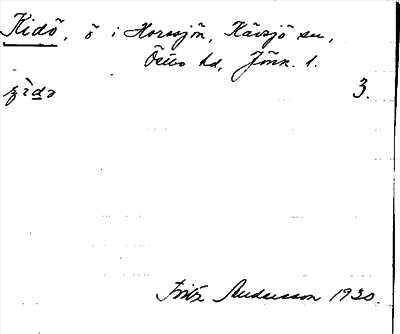 Kidö, ö i Horssjön, Kävsjö sn,
Östbo hd, Jönk. l.
3.
Fritz Andersson 1930.